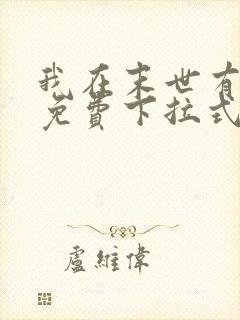 我在末世有
免費下拉式
盧維偉